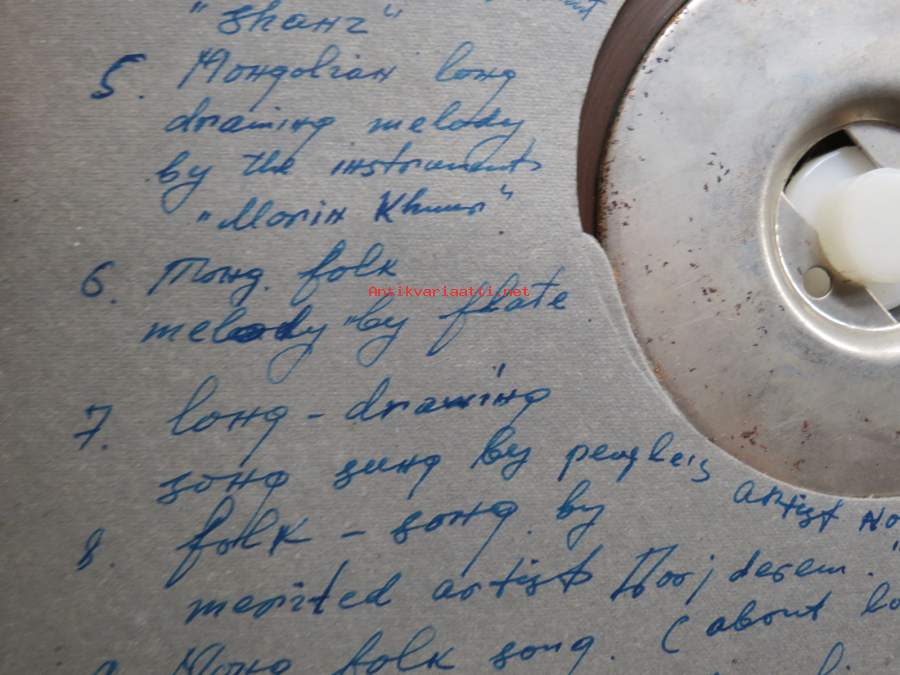 "Shanz"
5. Mongolian long
drawing melody
by the instruments
"Morin Khuur"
6. Mong. folk
Antikvariaatti.net
melody by flute
7. long-drawing
song sung by people's
artist No
8. folk-song by
merited artist Dorjderem."
Mong folk song. (about lo